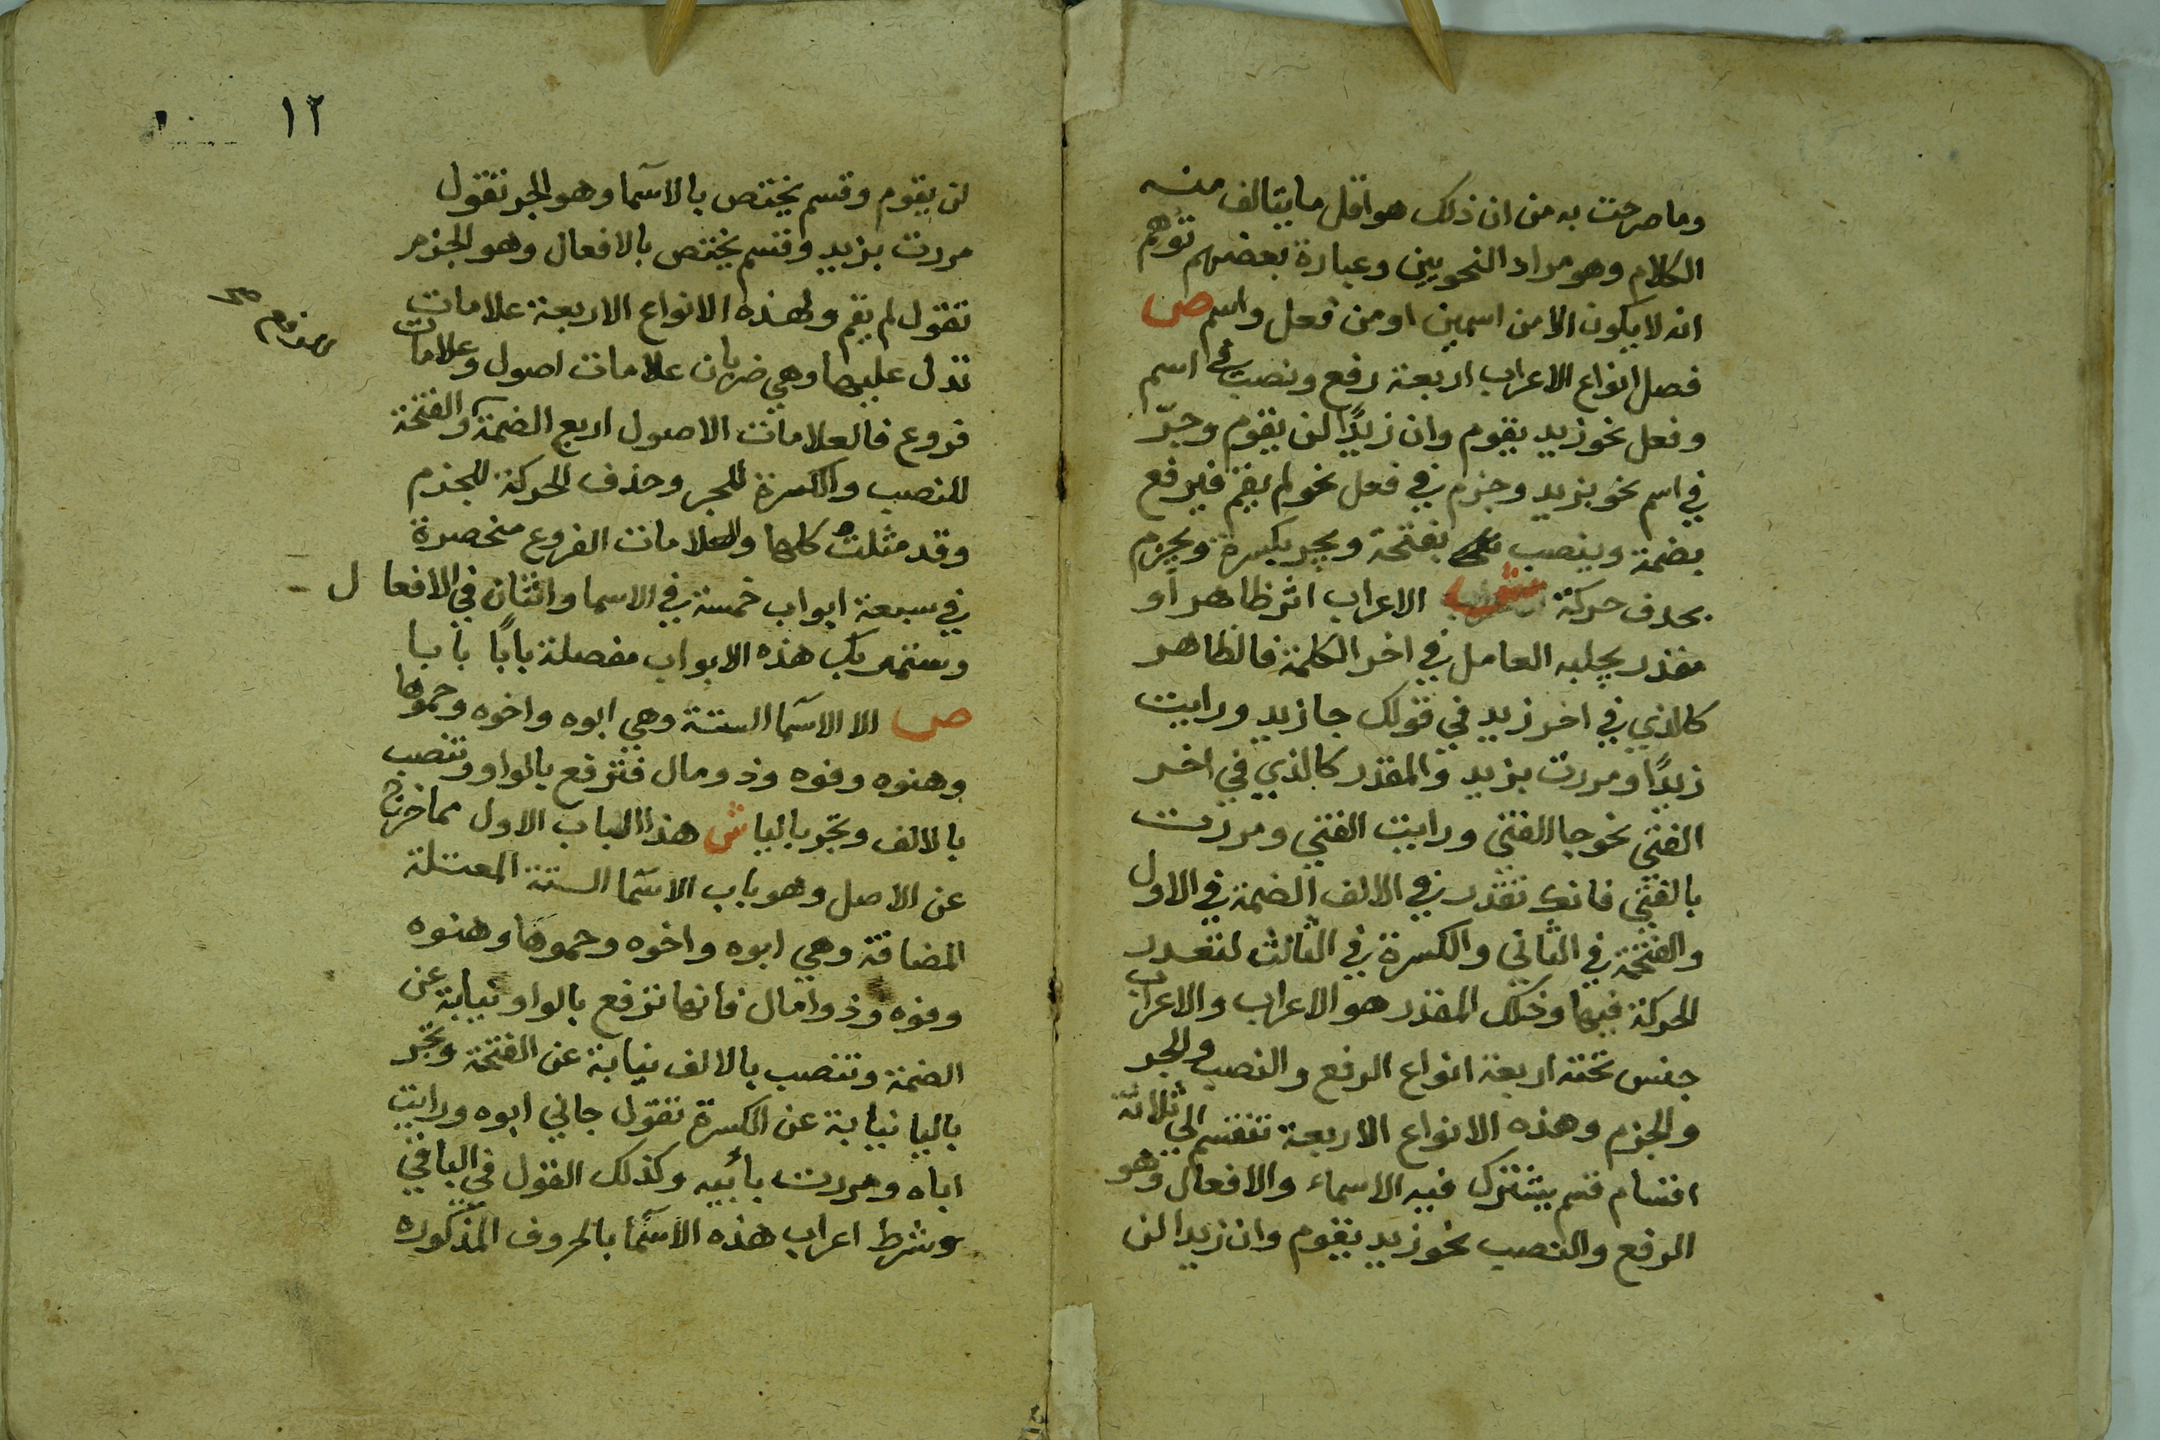 وما صرحت به من ان ذلك هو اقل ما يتالف منه
الكلام وهو مراد النحويين وعبارة بعضهم توهم
انه لا يكون الا من اسمين او من فعل واسم ص
فصل انواع الاعراب اربعة رفع ونصب في اسم
وفعل نحو زيد يقوم وان زيدًا لن يقوم وجرّ
في اسم نحو بزيد وجزم في فعل نحو لم يقم فيرفع
بضمة وينصب بفتحة ويجر بكسرة ويجزم
بحذف حركة ش الاعراب اثر ظاهر او
مقدر يجلبه العامل في اخر الكلمة فالظاهر
كالذي في اخر زيد في قولك جا زيد ورايت
زيدًا ومررت بزيد والمقدر كالذي في اخر
الفتى نحو جا الفتى ورايت الفتى ومررت
بالفتى فانك تقدر في الالف الضمة في الاول
والفتحة في الثاني والكسرة في الثالث لتعذر
الحركة فيها وذلك المقدر هو الاعراب والاعراب
جنس تحته اربعة انواع الرفع والنصب والجر
والجزم وهذه الانواع الاربعة تنقسم الى ثلاثة
اقسام قسم يشترك فيه الاسماء والافعال وهو
الرفع والنصب نحو زيد يقوم وان زيدا لن
١٢
لن يقوم وقسم يختص بالاسما وهو الجر تقول
مررت بزيد وقسم يختص بالافعال وهو الجزم
تقول لم يقم ولهذه الانواع الاربعة علامات
تدل عليها وهي ضربان علامات اصول وعلامات
فروع فالعلامات الاصول اربع الضمة والفتحة
للنصب والكسرة للجر وحذف الحركة للجزم
وقد مثلت كلها والعلامات الفروع منحصرة
في سبعة ابواب خمسة في الاسما واثنان في الافعال
وستمر بك هذه الابواب مفصلة بابًا بابا
ص الا الاسما الستة وهي ابوه واخوه وحموها
وهنوه وفوه وذو مال فترفع بالواو وتنصب
بالالف وتجر باليا ش هذا الباب الاول مما خرج
عن الاصل وهو باب الاسما الستة المعتلة
المضافة وهي ابوه واخوه وحموها وهنوه
وفوه وذوا مال فانها ترفع بالواو نيابة عن
الضمة وتنصب بالالف نيابة عن الفتحة وتجر
باليا نيابة عن الكسرة تقول جاني ابوه ورايت
اباه ومررت بأبيه وكذلك القول في الباقي
وشرط اعراب هذه الاسما بالحروف المذكوره